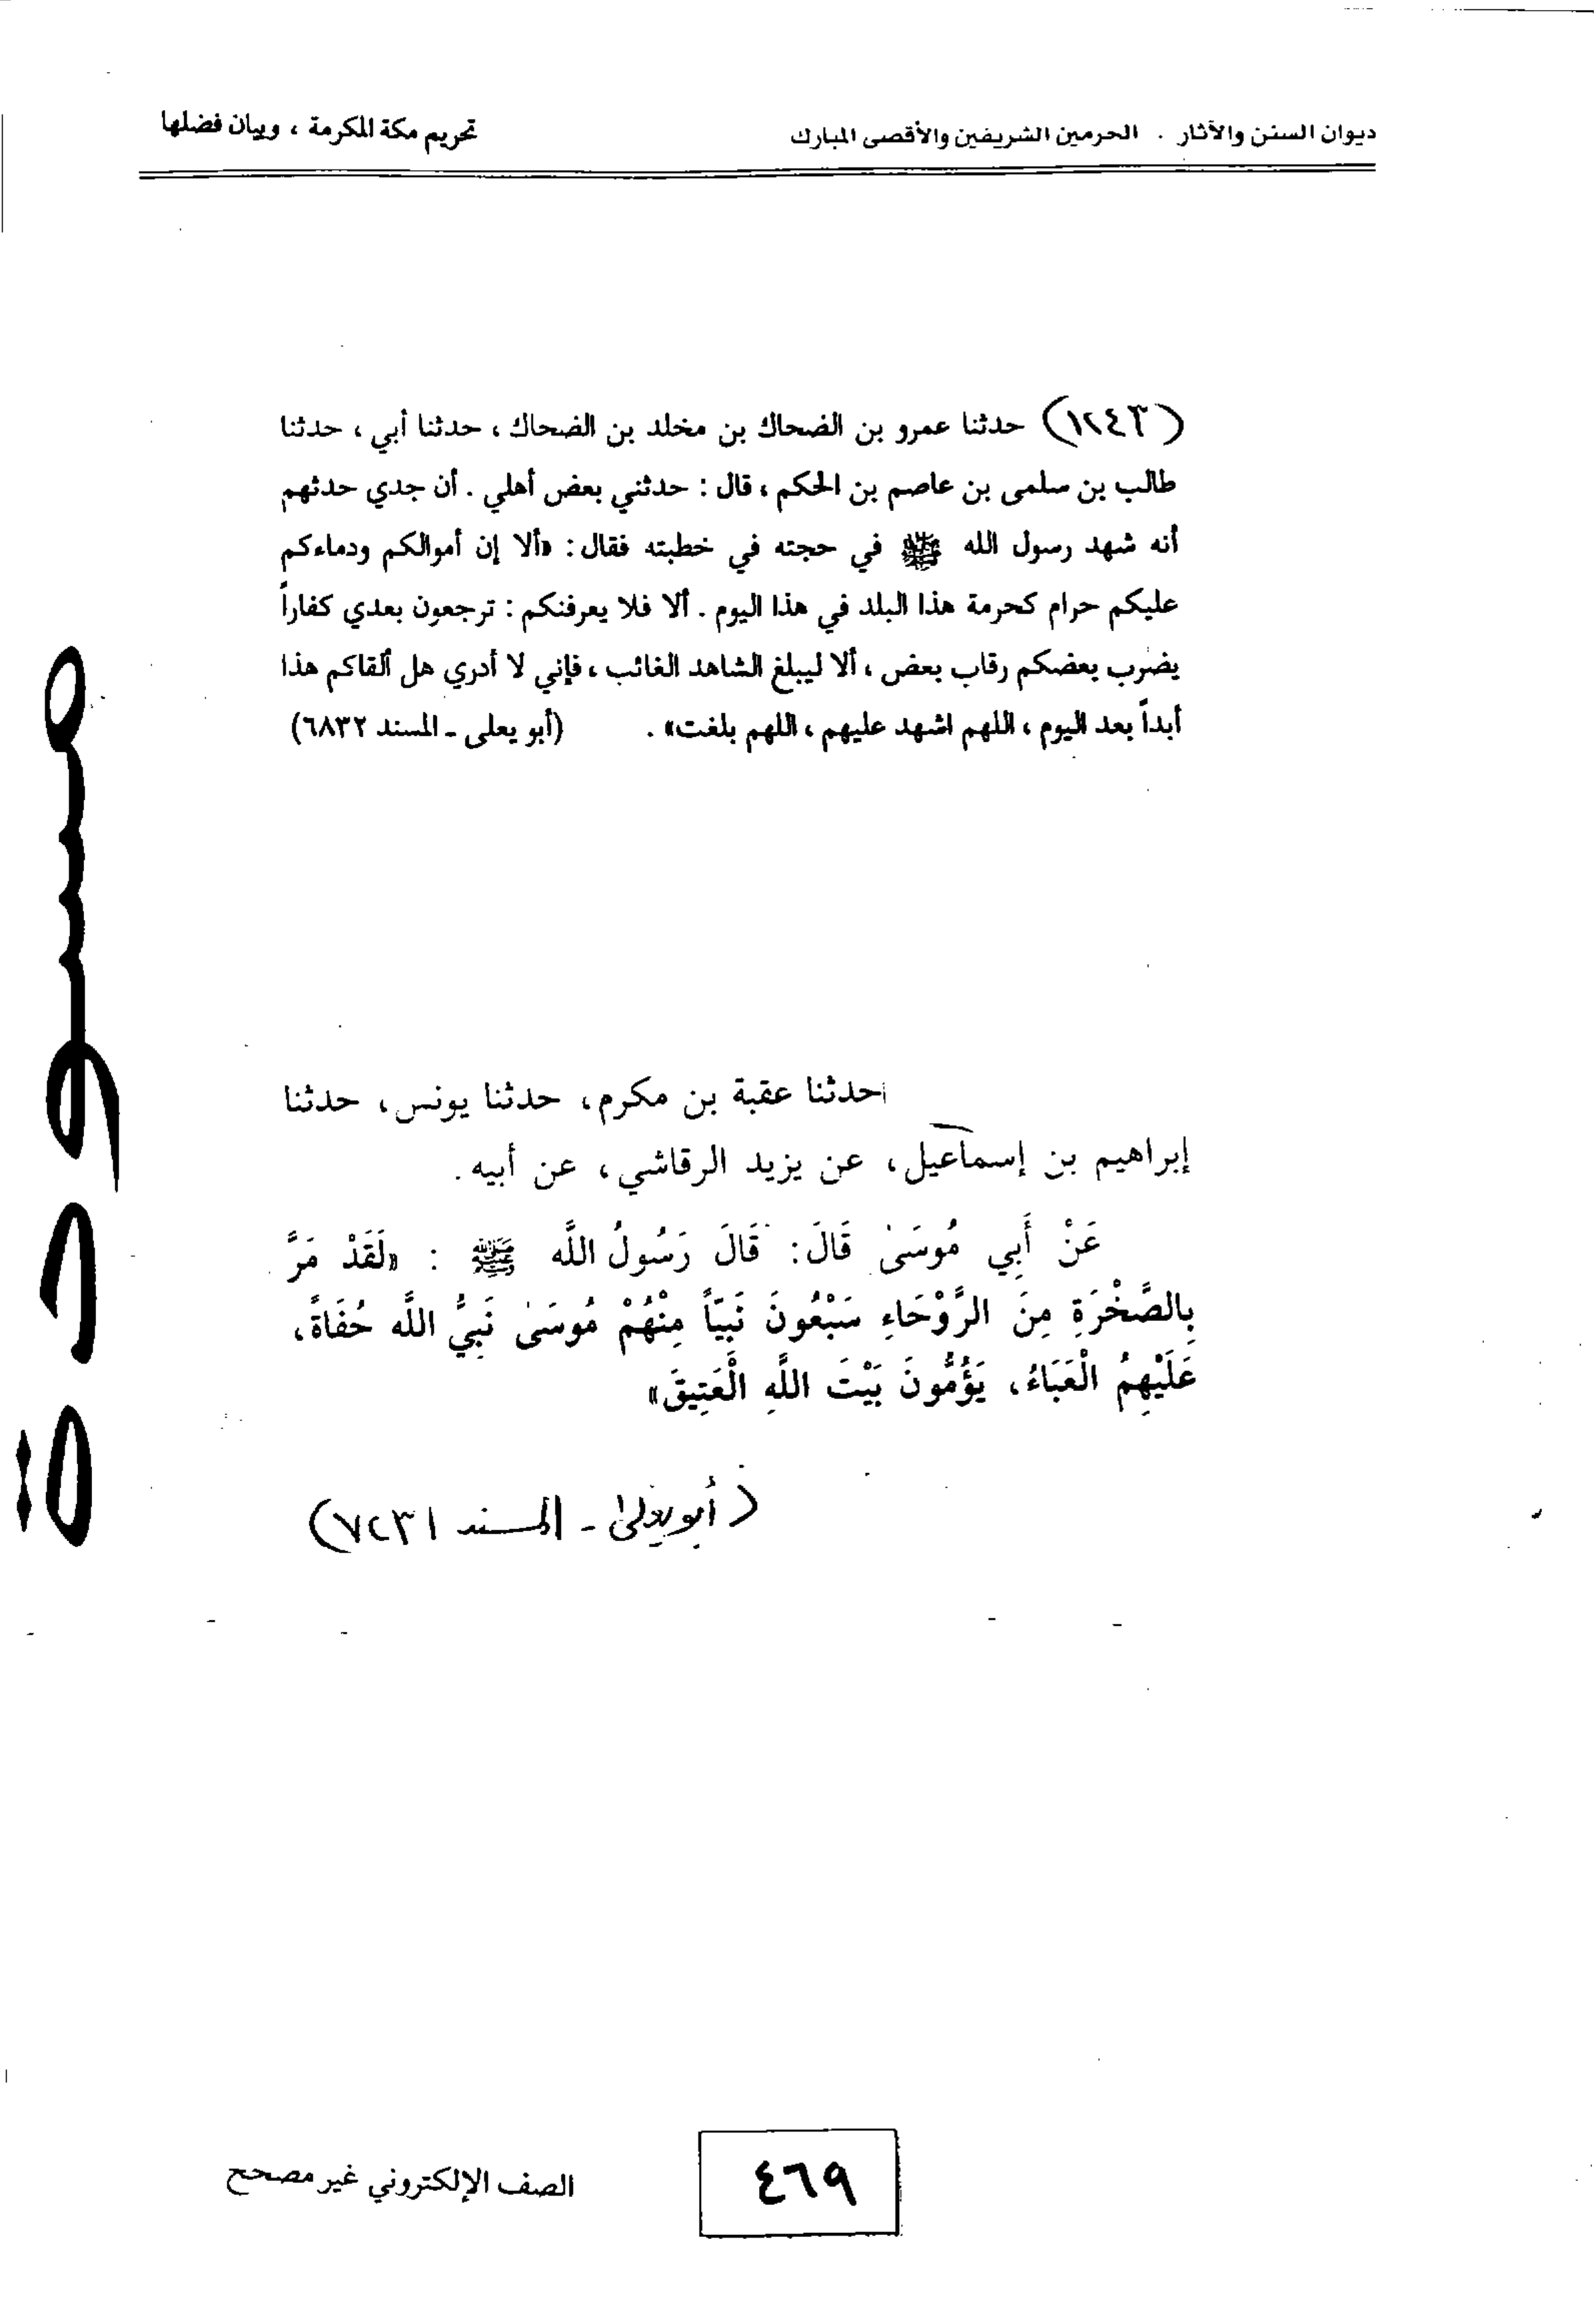 ديوان السنن والآثار . الحرمين الشريفين والأقصى المبارك
تحريم مكة المكرمة ، وبيان فضلها
(١٢٤٣) حدثنا عمرو بن الضحاك بن مخلد بن الضحاك ، حدثنا أبي ، حدثنا
طالب بن سلمى بن عاصم بن الحكم ، قال : حدثني بعض أهلي . أن جدي حدثهم
أنه شهد رسول الله ﷺ في حجته في خطبته فقال : «ألا إن أموالكم ودماءكم
عليكم حرام كحرمة هذا البلد في هذا اليوم . ألا فلا يعرفنكم : ترجعون بعدي كفاراً
يضرب بعضكم رقاب بعض ، ألا ليبلغ الشاهد الغائب ، فإني لا أدري هل ألقاكم هذا
أبداً بعد اليوم ، اللهم اشهد عليهم ، اللهم بلغت» . (أبو يعلى - المسند ٦٨٣٢)
حدثنا عقبة بن مكرم، حدثنا يونس، حدثنا
إبراهيم بن إسماعيل، عن يزيد الرقاشي، عن أبيه.
عَنْ أَبِي مُوسَىٰ قَالَ: قَالَ رَسُولُ اللَّه ﷺ : «لَقَدْ مَرَّ
بِالصَّخْرَةِ مِنَ الرَّوْحَاءِ سَبْعُونَ نَبِيّاً مِنْهُمْ مُوسَىٰ نَبِيُّ اللَّه حُفَاةً،
عَلَيْهِمُ الْعَبَاءُ، يَؤُمُّونَ بَيْتَ اللَّهِ الْعَتِيقَ»
(أبو يعلى - المسند ٧٢٣١)
مسودة
٤٦٩
الصف الإلكتروني غير مصحح